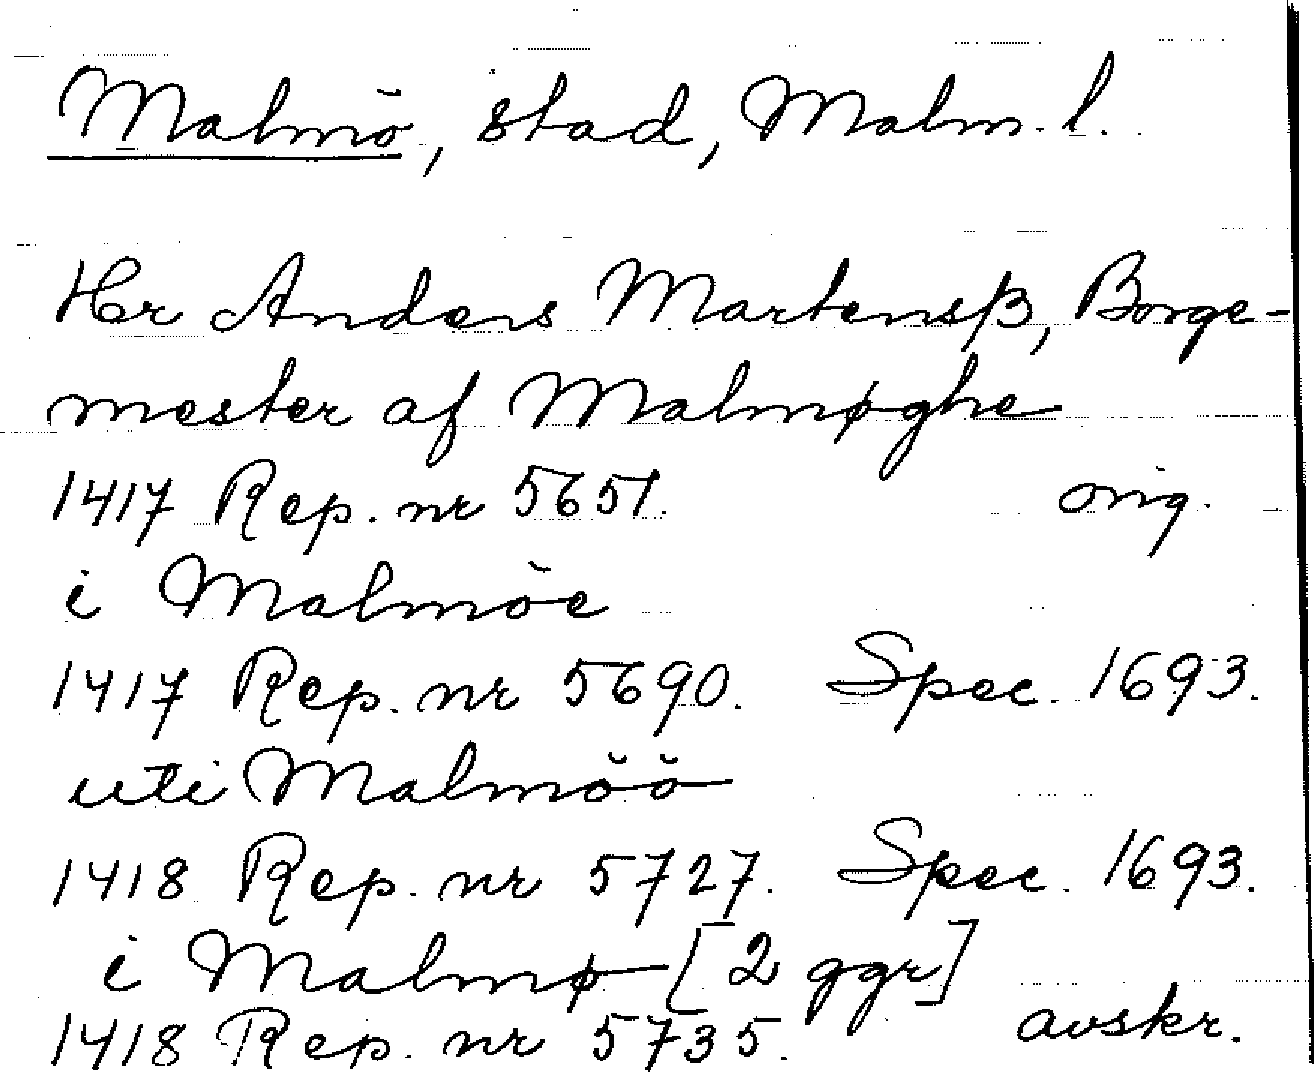 Malmö, stad, Malm. l.
Hr Anders Martensß, Borge-
mester af Malmøghe
1417 Rep. nr 5651. orig.
i Malmöe
1417 Rep. nr 5690. Spec. 1693.
uti Malmöö
1418 Rep. nr 5727. Spec. 1693.
i Malmø [2 ggr]
1418 Rep. nr 5735. avskr.